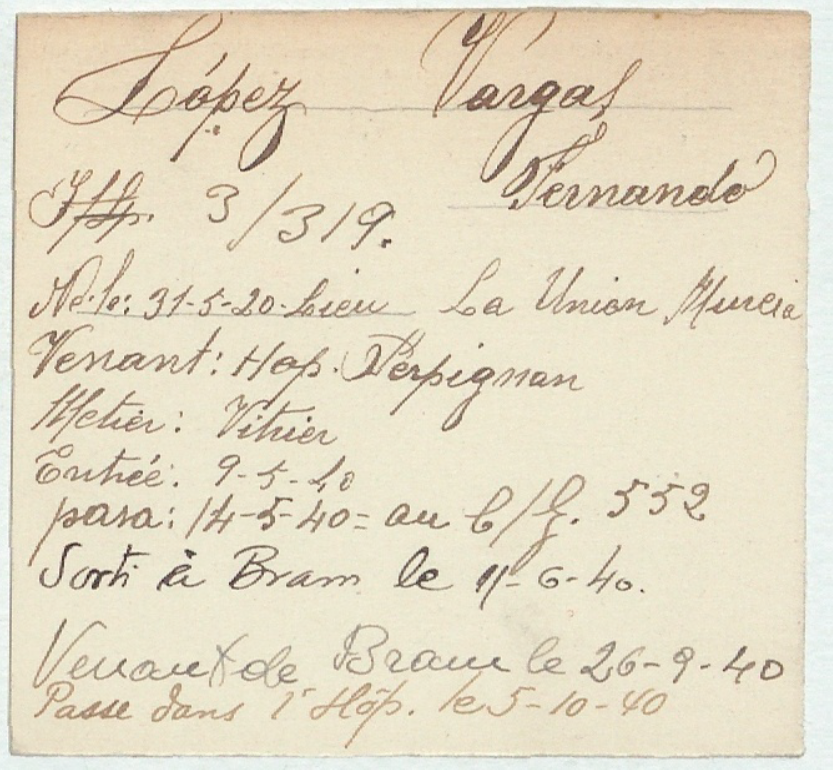 López Vargas
Fernando
3/319.
Né.le: 31-5-20-Lieu La Union Murcia
Venant: Hop. Perpignan
Metier: Vitrier
Entrée: 9-5-40
pasa: 14-5-40= au C/G. 552
Sorti à Bram le 11-6-40.
Venant de Bram le 26-9-40
Passe dans l'Hôp. le 5-10-40